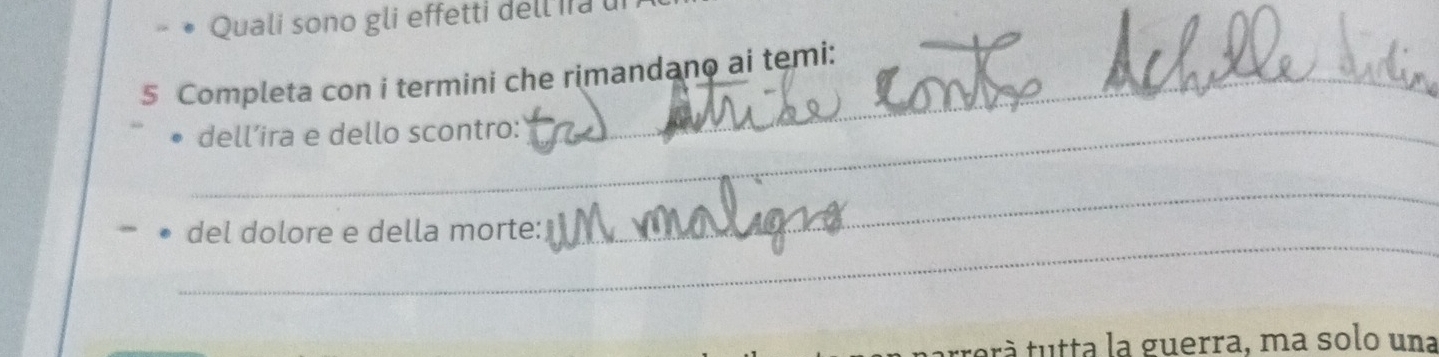 • Quali sono gli effetti dell'ira di
5 Completa con i termini che rimandano ai temi:
• dell'ira e dello scontro: tra Atride contro Achille
• del dolore e della morte: un maligno
non narrerà tutta la guerra, ma solo una